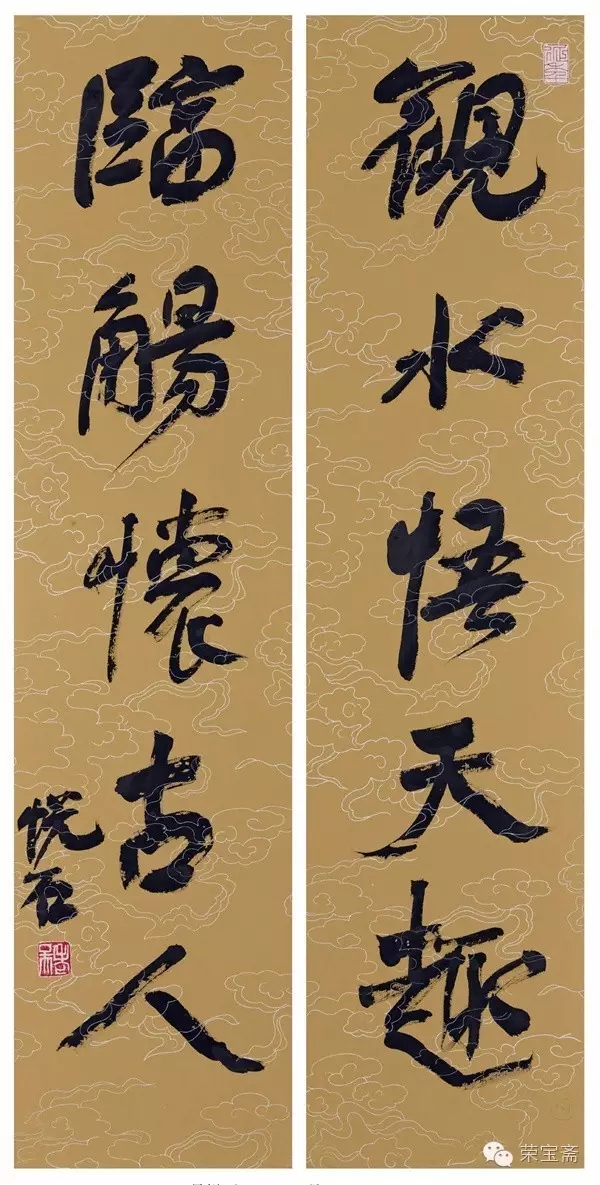 觀水悟天趣
臨觴懷古人
悦石
荣宝斋